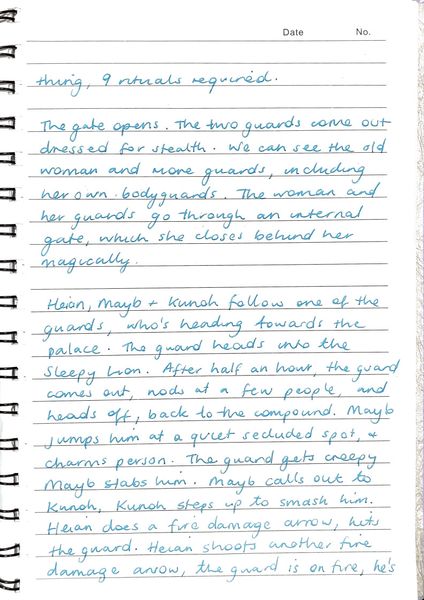 Date No.
thing, 9 rituals required.
The gate opens. The two guards come out
dressed for stealth. We can see the old
woman and more guards, including
her own bodyguards. The woman and
her guards go through an internal
gate, which she closes behind her
magically.
Heian, Mayb + Kunoh follow one of the
guards, who's heading towards the
palace. The guard heads into the
Sleepy Lion. After half an hour, the guard
comes out, nods at a few people, and
heads off, back to the compound. Mayb
jumps him at a quiet secluded spot, &
charms person. The guard gets creepy
Mayb stabs him. Mayb calls out to
Kunoh, Kunoh steps up to smash him.
Heian does a fire damage arrow, hits
the guard. Heian shoots another fire
damage arrow, the guard is on fire, he's